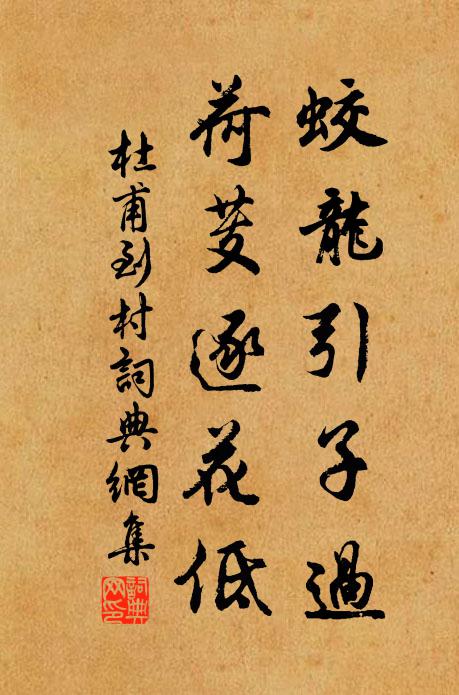 蛟龍引子過
荷芰逐花低
杜甫到村詞典網集
詞典网印